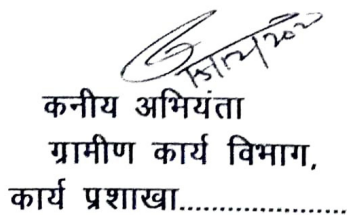 कनीय अभियंता
ग्रामीण कार्य विभाग,
कार्य प्रशाखा....................